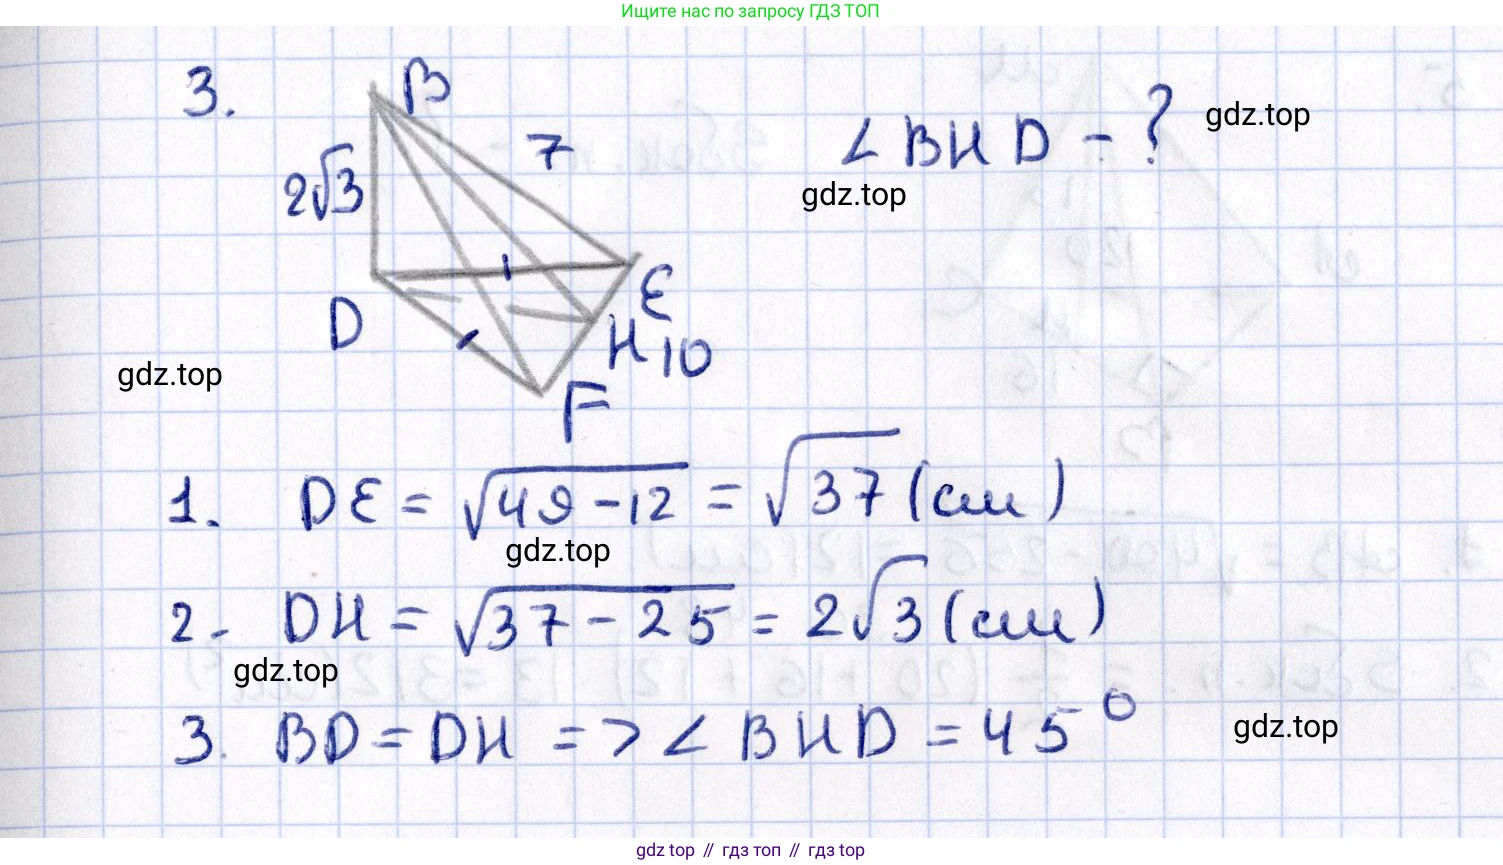 Ищите нас по запросу ГДЗ ТОП
3.
B
7
∠BHD - ?
gdz.top
2√3
gdz.top
E
D
H 10
gdz.top
F
1. DE = √49-12 = √37 (см)
gdz.top
2. DH = √37-25 = 2√3 (см)
gdz.top
3. BD = DH => ∠BHD = 45°
gdz.top
gdz top // гдз топ // гдз top